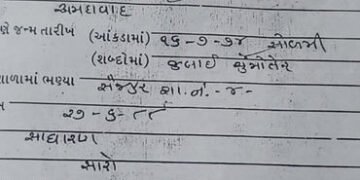 અમદાવાદ
ણે જન્મ તારીખ (આંકડામાં) ૧૬-૭-૭૪ સોળમી
(શબ્દોમાં) જુલાઈ ચુમોતેર
ળામાં ભણ્યા સૈજપુર શા.નં.-૪-
૨૭-૬-૮૮
સાધારણ
સારો